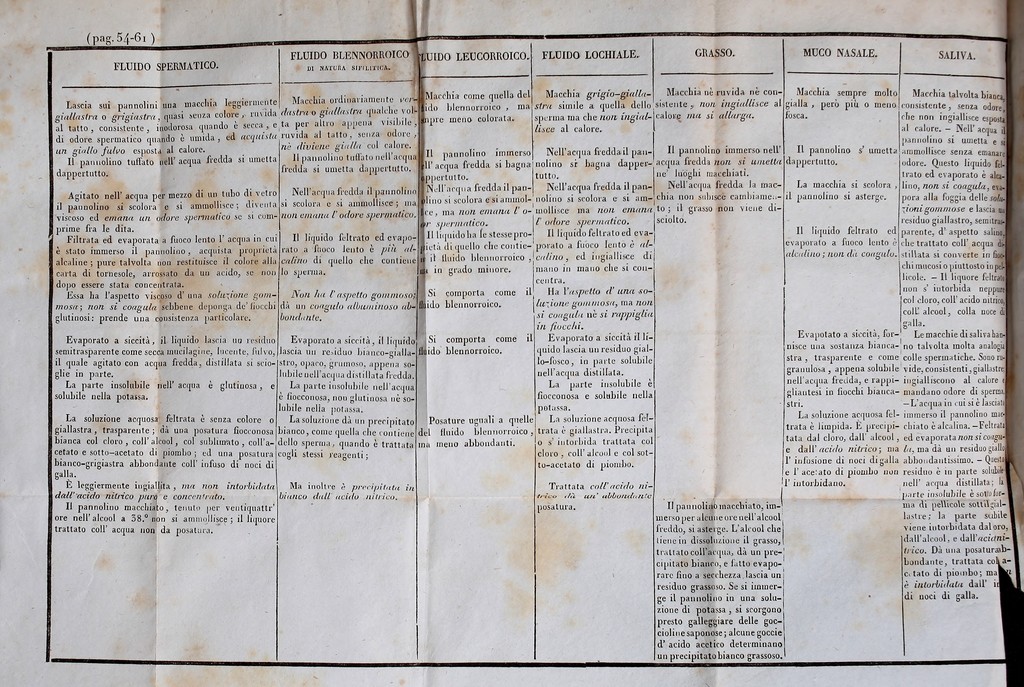 (pag. 54-61 )
FLUIDO SPERMATICO.
Lascia sui pannolini una macchia leggiermente
giallastra o grigiastra, quasi senza colore, ruvida
al tatto, consistente, inodorosa quando è secca, e
di odore spermatico quando è umida, ed acquista
un giallo fulvo esposta al calore.
Il pannolino tuffato nell' acqua fredda si umetta
dappertutto.
Agitato nell' acqua per mezzo di un tubo di vetro
il pannolino si scolora e si ammollisce; diventa
viscoso ed emana un odore spermatico se si com-
prime fra le dita.
Filtrata ed evaporata a fuoco lento l' acqua in cui
è stato immerso il pannolino, acquista proprietà
alcaline; pure talvolta non restituisce il colore alla
carta di tornesole, arrossato da un acido, se non
dopo essere stata concentrata.
Essa ha l'aspetto viscoso d' una soluzione gom-
mosa; non si coagula sebbene deponga de' fiocchi
glutinosi: prende una consistenza particolare.
Evaporato a siccità, il liquido lascia un residuo
semitrasparente come secca mucilagine, lucente, fulvo,
il quale agitato con acqua fredda, distillata si scio-
glie in parte.
La parte insolubile nell' acqua è glutinosa, e
solubile nella potassa.
La soluzione acquosa feltrata è senza colore o
giallastra, trasparente; dà una posatura fiocconosa
bianca col cloro, coll' alcool, col sublimato, coll'a-
cetato e sotto-acetato di piombo; ed una posatura
bianco-grigiastra abbondante coll' infuso di noci di
galla.
È leggermente ingiallita, ma non intorbidata
dall' acido nitrico puro e concentrato.
Il pannolino macchiato, tenuto per ventiquattr'
ore nell'alcool a 38.° non si ammollisce; il liquore
trattato coll' acqua non dà posatura.
FLUIDO BLENNORROICO
DI NATURA SIFILITICA.
Macchia ordinariamente ver-
dastra o giallastra qualche vol-
ta per altro appena visibile,
ruvida al tatto, senza odore,
nè diviene gialla col calore.
Il pannolino tuffato nell'acqua
fredda si umetta dappertutto.
Nell'acqua fredda il pannolino
si scolora e si ammollisce; ma
non emana l' odore spermatico.
Il liquido feltrato ed evapo-
rato a fuoco lento è più al-
calino di quello che contiene
lo sperma.
Non ha l' aspetto gommoso;
dà un coagulo albuminoso ab-
bondante.
Evaporato a siccità, il liquido
lascia un residuo bianco-gialla-
stro, opaco, grumoso, appena so-
lubile nell'acqua distillata fredda.
La parte insolubile nell'acqua
è fiocconosa, non glutinosa nè so-
lubile nella potassa.
La soluzione dà un precipitato
bianco, come quella che contiene
dello sperma, quando è trattata
cogli stessi reagenti;
Ma inoltre è precipitata in
bianco dall' acido nitrico.
FLUIDO LEUCORROICO.
Macchia come quella del
fluido blennorroico, ma
sempre meno colorata.
Il pannolino immerso
nell' acqua fredda si bagna
dappertutto.
Nell'acqua fredda il pan-
nolino si scolora e si ammol-
lisce, ma non emana l' o-
dor spermatico.
Il liquido ha le stesse pro-
prietà di quello che contie-
ne il fluido blennorroico,
ma in grado minore.
Si comporta come il
fluido blennorroico.
Si comporta come il
fluido blennorroico.
Posature uguali a quelle
del fluido blennorroico,
ma meno abbondanti.
FLUIDO LOCHIALE.
Macchia grigio-gialla-
stra simile a quella dello
sperma ma che non ingial-
lisce al calore.
Nell'acqua fredda il pan-
nolino si bagna dapper-
tutto.
Nell'acqua fredda il pan-
nolino si scolora e si am-
mollisce ma non emana
l' odore spermatico.
Il liquido feltrato ed eva-
porato a fuoco lento è al-
calino, ed ingiallisce di
mano in mano che si con-
centra.
Ha l'aspetto d' una so-
luzione gommosa, ma non
si coagula nè si rappiglia
in fiocchi.
Evaporato a siccità il li-
quido lascia un residuo gial-
lo-fosco, in parte solubile
nell'acqua distillata.
La parte insolubile è
fiocconosa e solubile nella
potassa.
La soluzione acquosa fel-
trata è giallastra. Precipita
o s' intorbida trattata col
cloro, coll' alcool e col sot-
to-acetato di piombo.
Trattata coll' acido ni-
trico dà un' abbondante
posatura.
GRASSO.
Macchia nè ruvida nè con-
sistente, non ingiallisce al
calore ma si allarga.
Il pannolino immerso nell'
acqua fredda non si umetta
ne' luoghi macchiati.
Nell'acqua fredda la mac-
chia non subisce cambiamen-
to; il grasso non viene di-
sciolto.
Il pannolino macchiato, im-
merso per alcune ore nell'alcool
freddo, si asterge. L'alcool che
tiene in dissoluzione il grasso,
trattato coll'acqua, dà un pre-
cipitato bianco, e fatto evapo-
rare fino a secchezza lascia un
residuo grassoso. Se si immer-
ge il pannolino in una solu-
zione di potassa, si scorgono
presto galleggiare delle goc-
cioline saponose; alcune goccie
d' acido acetico determinano
un precipitato bianco grassoso.
MUCO NASALE.
Macchia sempre molto
gialla, però più o meno
fosca.
Il pannolino s' umetta
dappertutto.
La macchia si scolora,
il pannolino si asterge.
Il liquido feltrato ed
evaporato a fuoco lento è
alcalino; non dà coagulo.
Evapotato a siccità, for-
nisce una sostanza bianca-
stra, trasparente e come
granulosa, appena solubile
nell'acqua fredda, e rappi-
gliantesi in fiocchi bianca-
stri.
La soluzione acquosa fel-
trata è limpida. È precipi-
tata dal cloro, dall' alcool,
e dall' acido nitrico; ma
l' infusione di noci di galla
e l' acetato di piombo non
l' intorbidano.
SALIVA.
Macchia talvolta bianca,
consistente, senza odore,
che non ingiallisce esposta
al calore. — Nell' acqua il
pannolino si umetta e si
ammollisce senza emanare
odore. Questo liquido fel-
trato ed evaporato è alca-
lino, non si coagula, eva-
pora alla foggia delle solu-
zioni gommose e lascia un
residuo giallastro, semitras-
parente, d' aspetto salino,
che trattato coll' acqua di-
stillata si converte in fioc-
chi mucosi o piuttosto in pel-
licole. — Il liquore feltrato
non s' intorbida neppure
col cloro, coll' acido nitrico,
coll' alcool, colla noce di
galla.
Le macchie di saliva han-
no talvolta molta analogia
colle spermatiche. Sono ru-
vide, consistenti, giallastre,
ingialliscono al calore e
mandano odore di sperma.
— L'acqua in cui si è lasciato
immerso il pannolino mac-
chiato è alcalina. — Feltrata
ed evaporata non si coagu-
la, ma dà un residuo giallo
abbondantissimo. — Questo
residuo è in parte solubile
nell' acqua distillata; la
parte insolubile è sotto for-
ma di pellicole sottili gial-
lastre; la parte solubile
viene intorbidata dal cloro,
dall'alcool, e dall'acido ni-
trico. Dà una posatura ab-
bondante, trattata coll' a-
cetato di piombo; ma non
è intorbidata dall' infuso
di noci di galla.